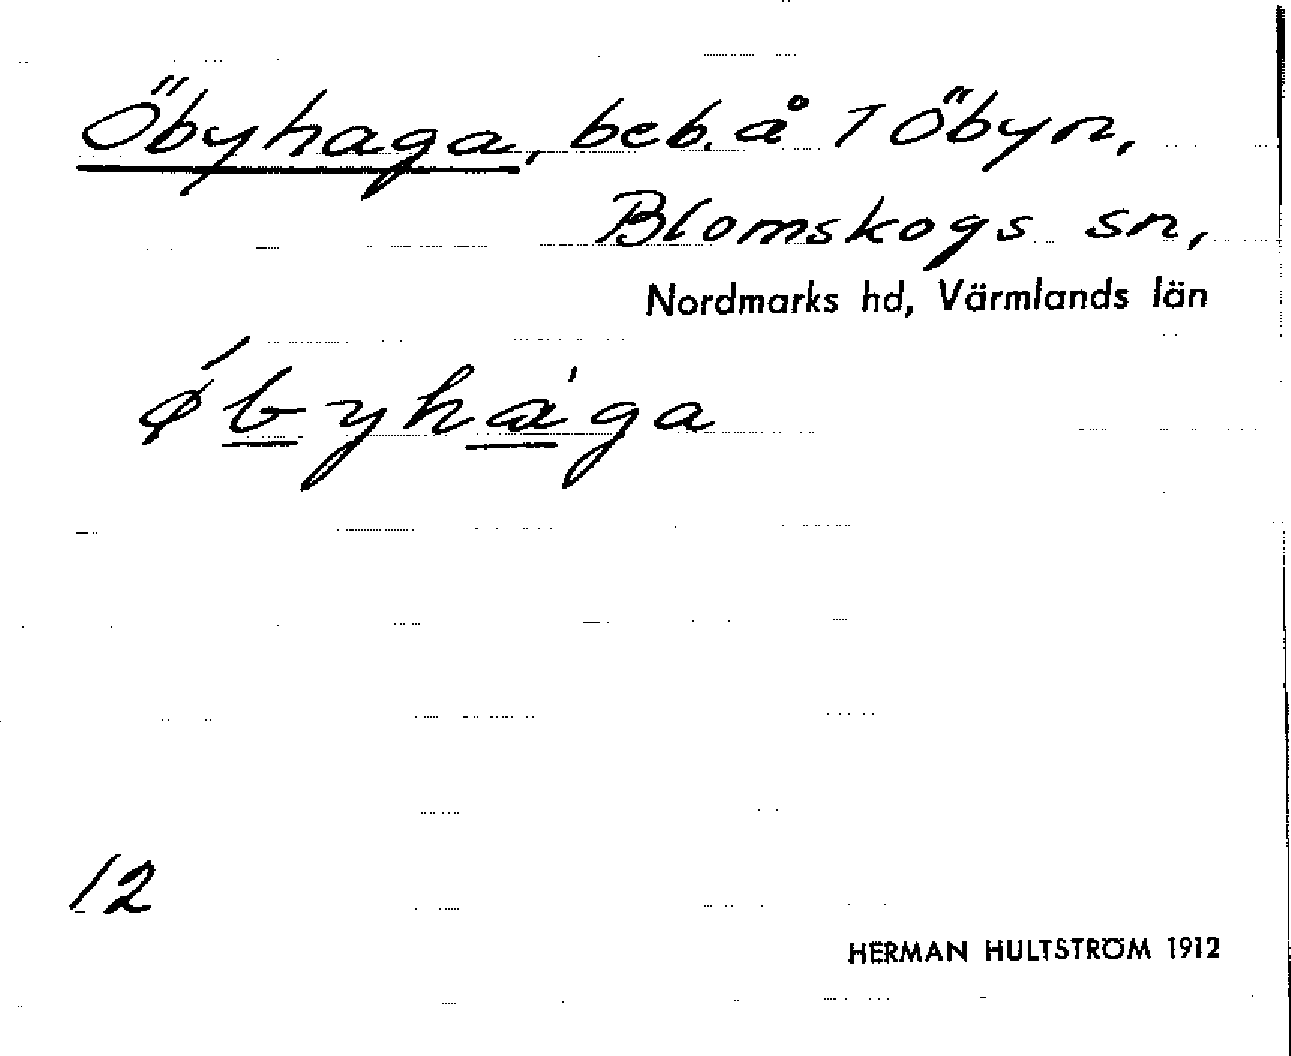 Öbyhaga, beb. å 1 Öbyn,
Blomskogs sn,
Nordmarks hd, Värmlands län
ǿbyhága
12
HERMAN HULTSTRÖM 1912